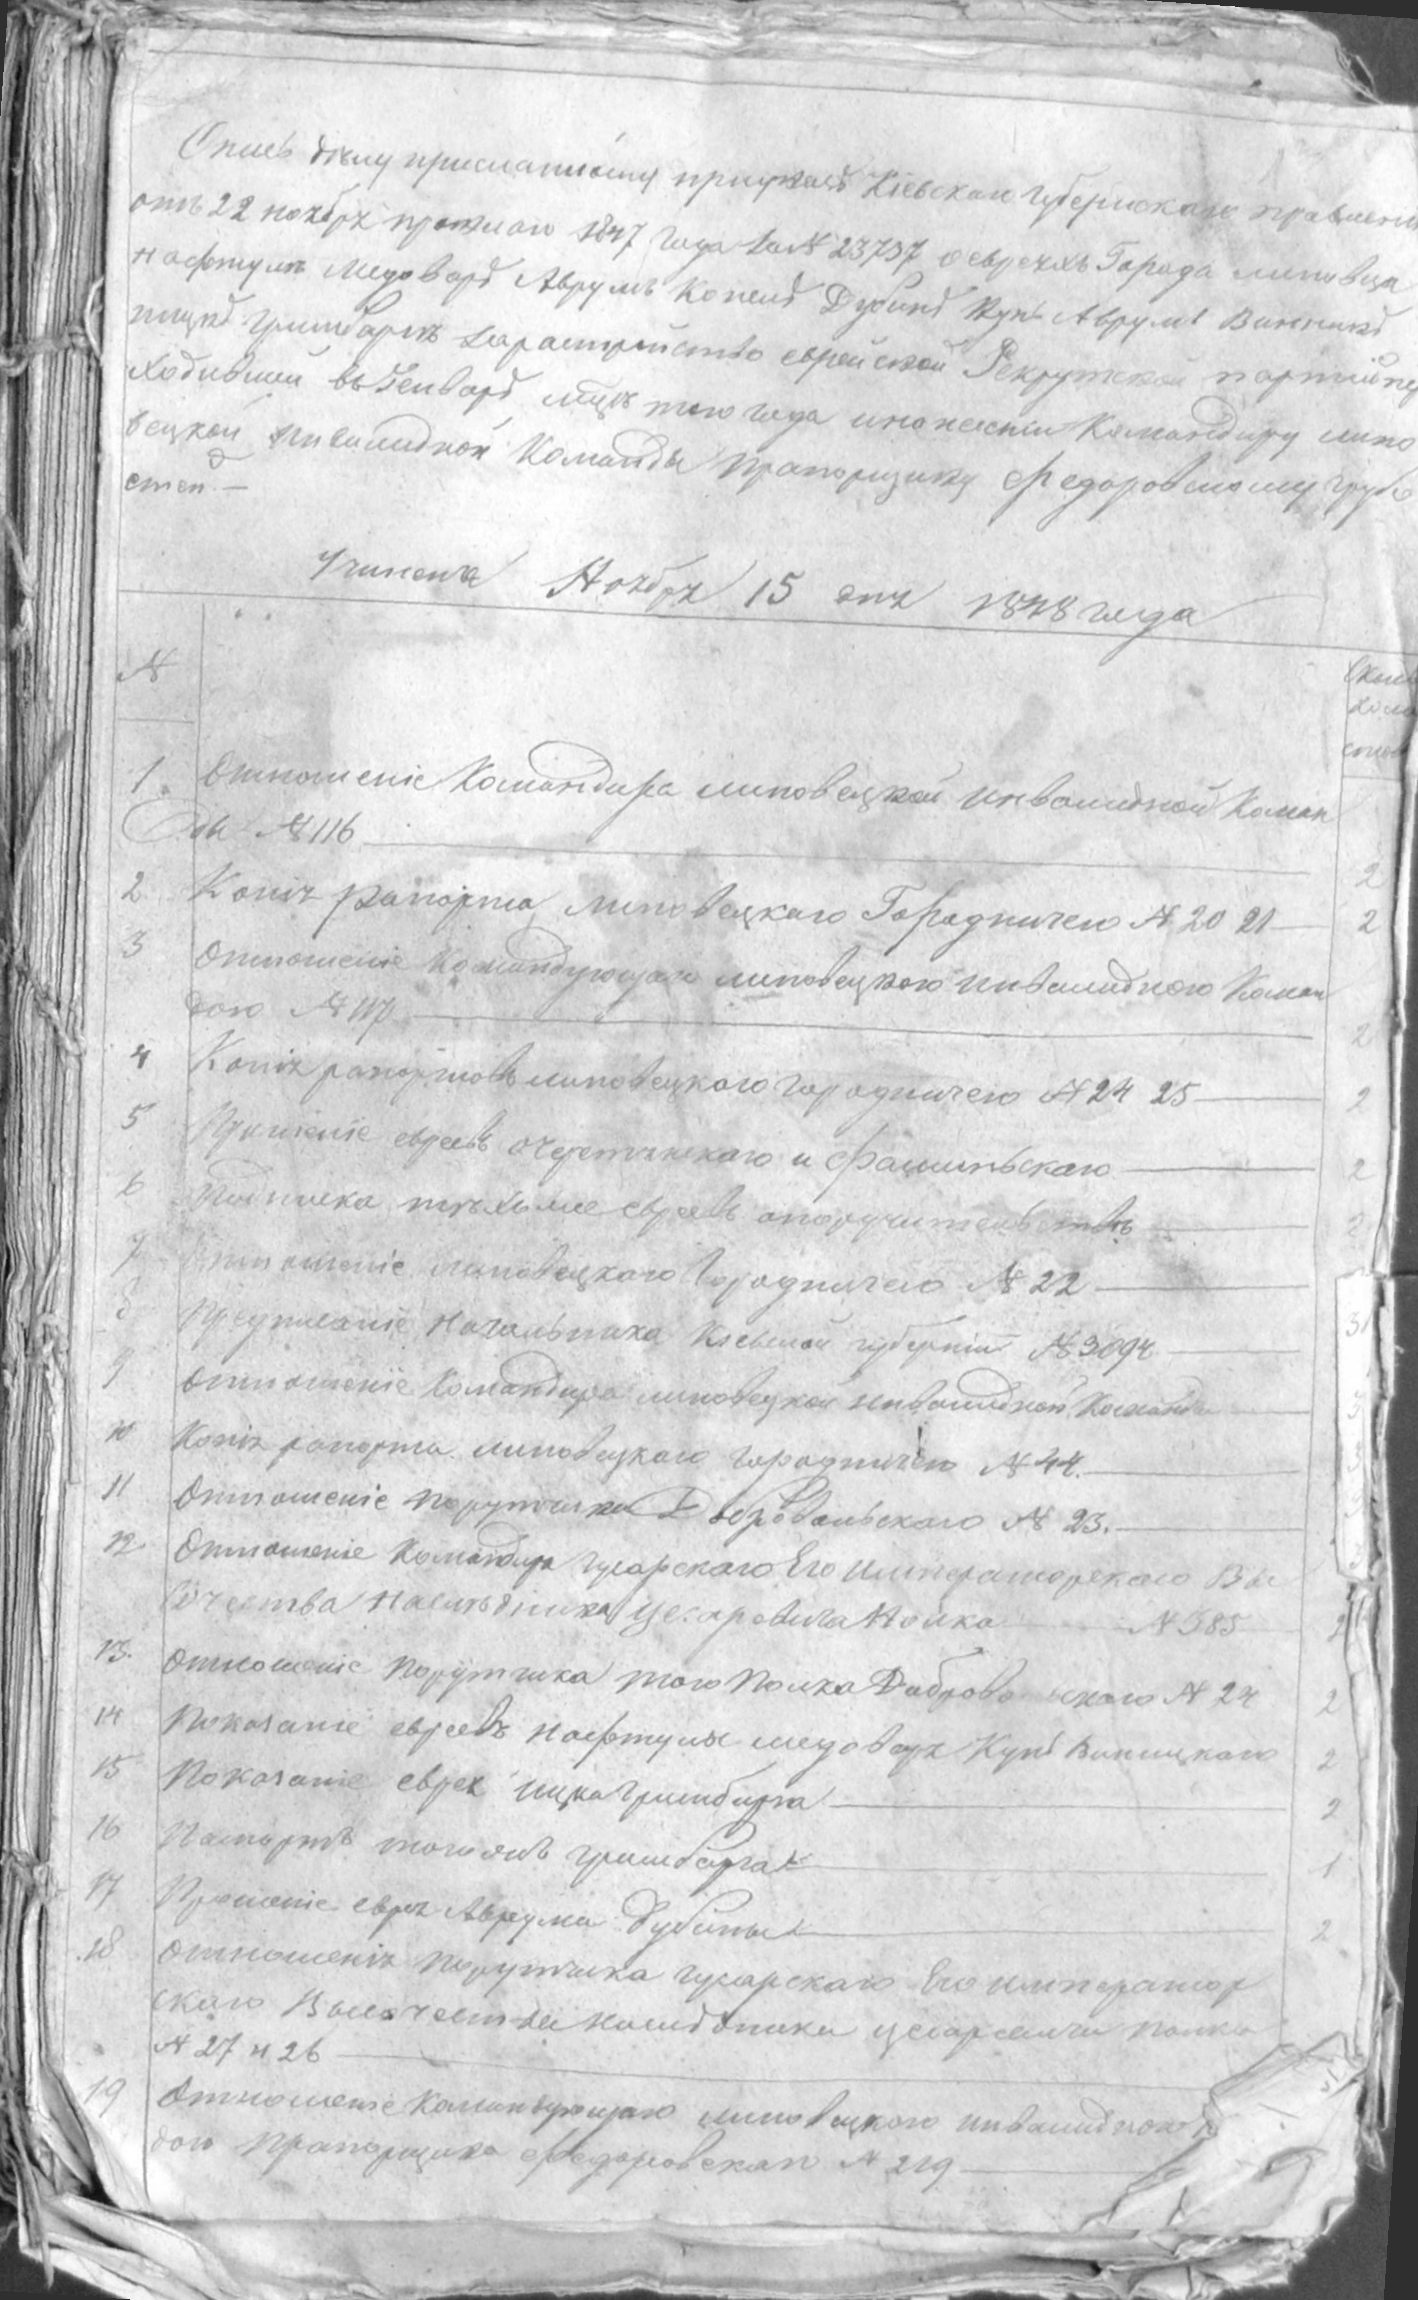 Опись дѣлу присланному при указѣ Кіевскаго Губернскаго правленія
отъ 22 ноября прошлаго 1847 года за № 23737 о евреяхъ Города Липовца
Нафтулѣ Медоварѣ Аврумѣ Дубинѣ Аврумѣ
Гринбаргѣ еврейской Рекрутской партіи пе
ходившей въ Генварѣ мцѣ того года и нанесеніи Командиру Липо
вецкой инвалидной Команды прапорщику Федоровскому грубо
стей. —
Учинена Ноября 15 дня 1848 года
№
1. Отношеніе Командира Липовецкой Инвалидной Коман
ды № 116 2
2 Копія рапорта Липовецкаго Городничего № 20 21 2
3 Отношеніе Командующаго Липовецкою инвалидною Коман
дою № 117 2
4 Копія рапортовъ Липовецкаго городничего № 24 25 2
5 Прошеніе евреевъ и 2
6 Подписка тѣхъ же евреевъ о поручительствѣ 2
7 Отношеніе Липовецкаго Городничего № 22
8 Предписаніе Начальника Кіевской губерніи № 3094 3
9 Отношеніе Командира Липовецкой инвалидной Команды
10 Копія рапорта Липовецкаго городничего № 44.
11 Отношеніе Поручика Добровольскаго № 23.
12 Отношеніе Командира гусарскаго Его Императорскаго Вы
сочества Наслѣдника Цесаревича Полка № 585 2
13. Отношеніе Поручика того Полка Добровольскаго № 24 2
14 Показаніе евреевъ Нафтулы Медоваря Винницкаго 2
15 Показаніе еврея Ицка Гринбарга 2
16 Паспортъ того Гринбарга 1
17 Прошеніе еврея Аврума Дубины 2
18 Отношенія Поручика гусарскаго Его Император
скаго Высочества наслѣдника цесаревича полка
№ 27 и 26
19 Отношеніе Командующаго Липовецкою инвалидною
дою Прапорщика Федоровскаго № 219